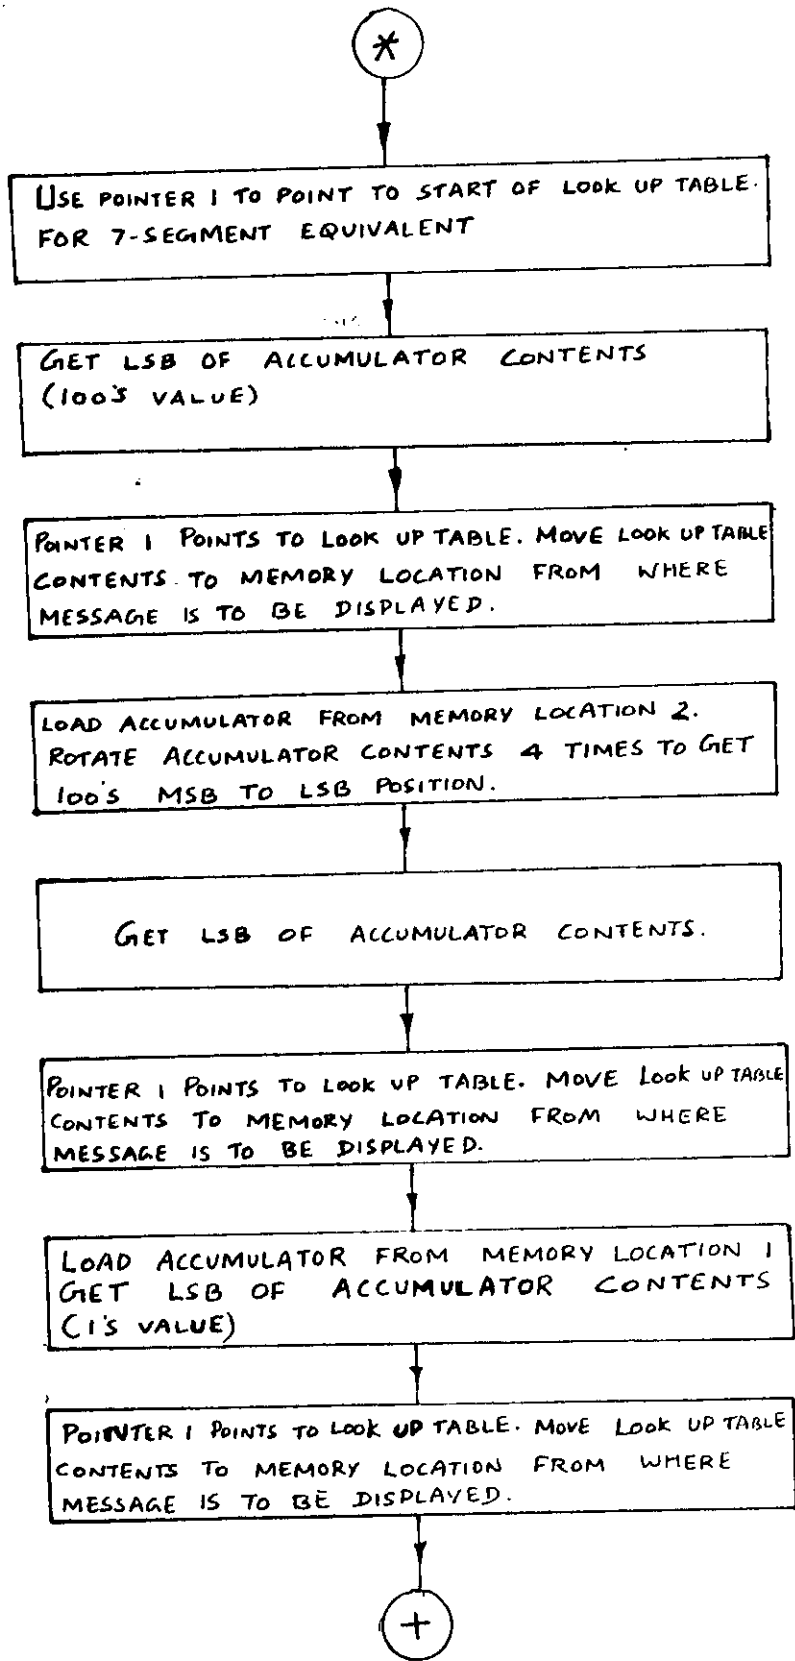 *
USE POINTER 1 TO POINT TO START OF LOOK UP TABLE.
FOR 7-SEGMENT EQUIVALENT
GET LSB OF ACCUMULATOR CONTENTS
(100'S VALUE)
POINTER 1 POINTS TO LOOK UP TABLE. MOVE LOOK UP TABLE
CONTENTS TO MEMORY LOCATION FROM WHERE
MESSAGE IS TO BE DISPLAYED.
LOAD ACCUMULATOR FROM MEMORY LOCATION 2.
ROTATE ACCUMULATOR CONTENTS 4 TIMES TO GET
100'S MSB TO LSB POSITION.
GET LSB OF ACCUMULATOR CONTENTS.
POINTER 1 POINTS TO LOOK UP TABLE. MOVE LOOK UP TABLE
CONTENTS TO MEMORY LOCATION FROM WHERE
MESSAGE IS TO BE DISPLAYED.
LOAD ACCUMULATOR FROM MEMORY LOCATION 1
GET LSB OF ACCUMULATOR CONTENTS
(1'S VALUE)
POINTER 1 POINTS TO LOOK UP TABLE. MOVE LOOK UP TABLE
CONTENTS TO MEMORY LOCATION FROM WHERE
MESSAGE IS TO BE DISPLAYED.
+